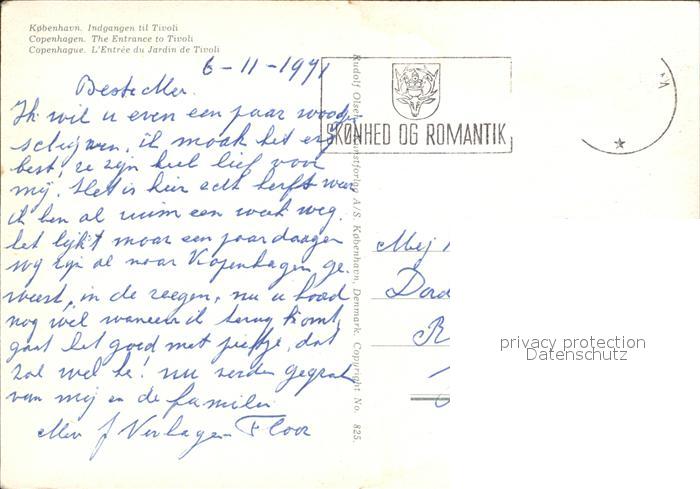 København. Indgangen til Tivoli
Copenhagen. The Entrance to Tivoli
Copenhague. L'Entrée du Jardin de Tivoli
6-11-1971
Beste Mev.
Ik wil u even een paar woorden
schrijven, ik maak het erg
best, ze zijn heel lief voor
mij. Het is hier echt herfst weer
ik ben al ruim een week weg.
het lijkt maar een paar daagen
wij zijn al naar Kopenhagen ge-
weest, in de reegen, nu u hoord
nog wel waneer ik terug komt,
gaat het goed met pietje, dat
zal wel he! nu verder gegroet
van mij en de familie
Mev J Verhagen-Floor
Rudolf Olsens Kunstforlag A/S. København, Denmark. Copyright No. 825.
SKØNHED OG ROMANTIK
Mej
privacy protection
Datenschutz